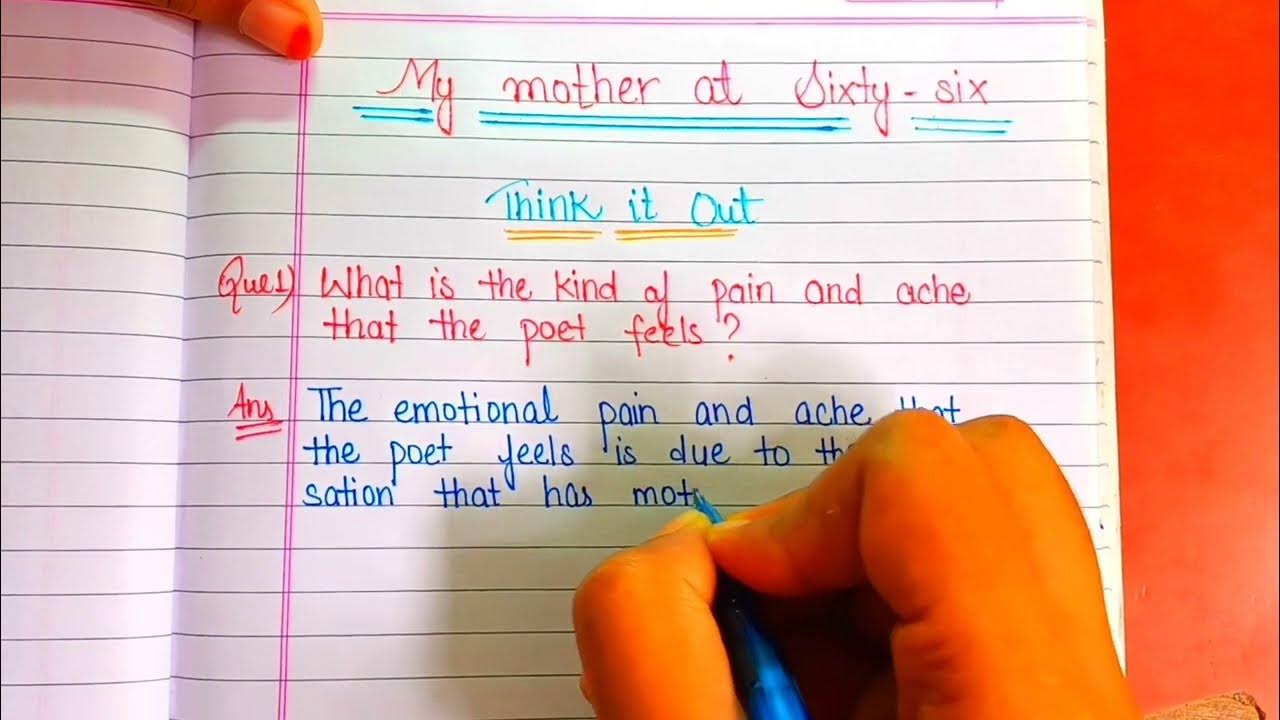 My mother at Sixty-six
Think it Out
Que1) What is the kind of pain and ache
that the poet feels?
Ans The emotional pain and ache that
the poet feels is due to
sation that has mot